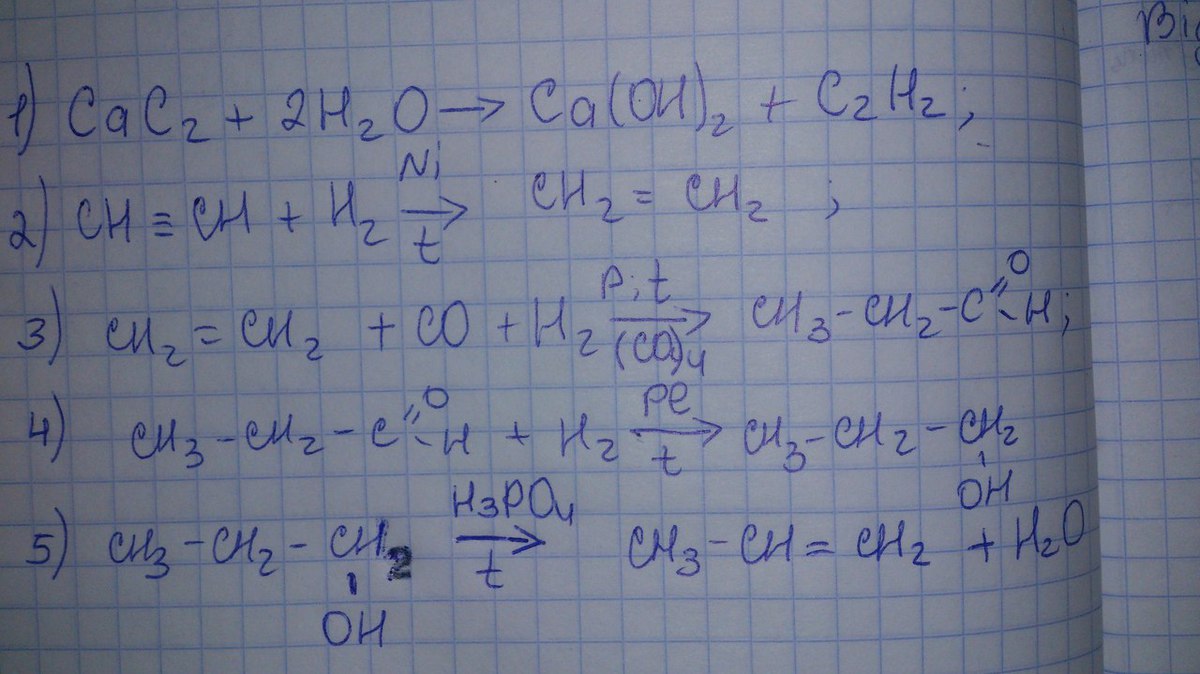 Ві
1) CaC₂ + 2H₂O → Ca(OH)₂ + C₂H₂;
2) CH ≡ CH + H₂ →(Ni, t) CH₂ = CH₂ ;
3) CH₂ = CH₂ + CO + H₂ →(P; t, (CO)₄) CH₃-CH₂-C(=O)-H;
4) CH₃-CH₂-C(=O)-H + H₂ →(Pt, t) CH₃-CH₂-CH₂-OH
5) CH₃-CH₂-CH₂-OH →(H₃PO₄, t) CH₃-CH = CH₂ + H₂O